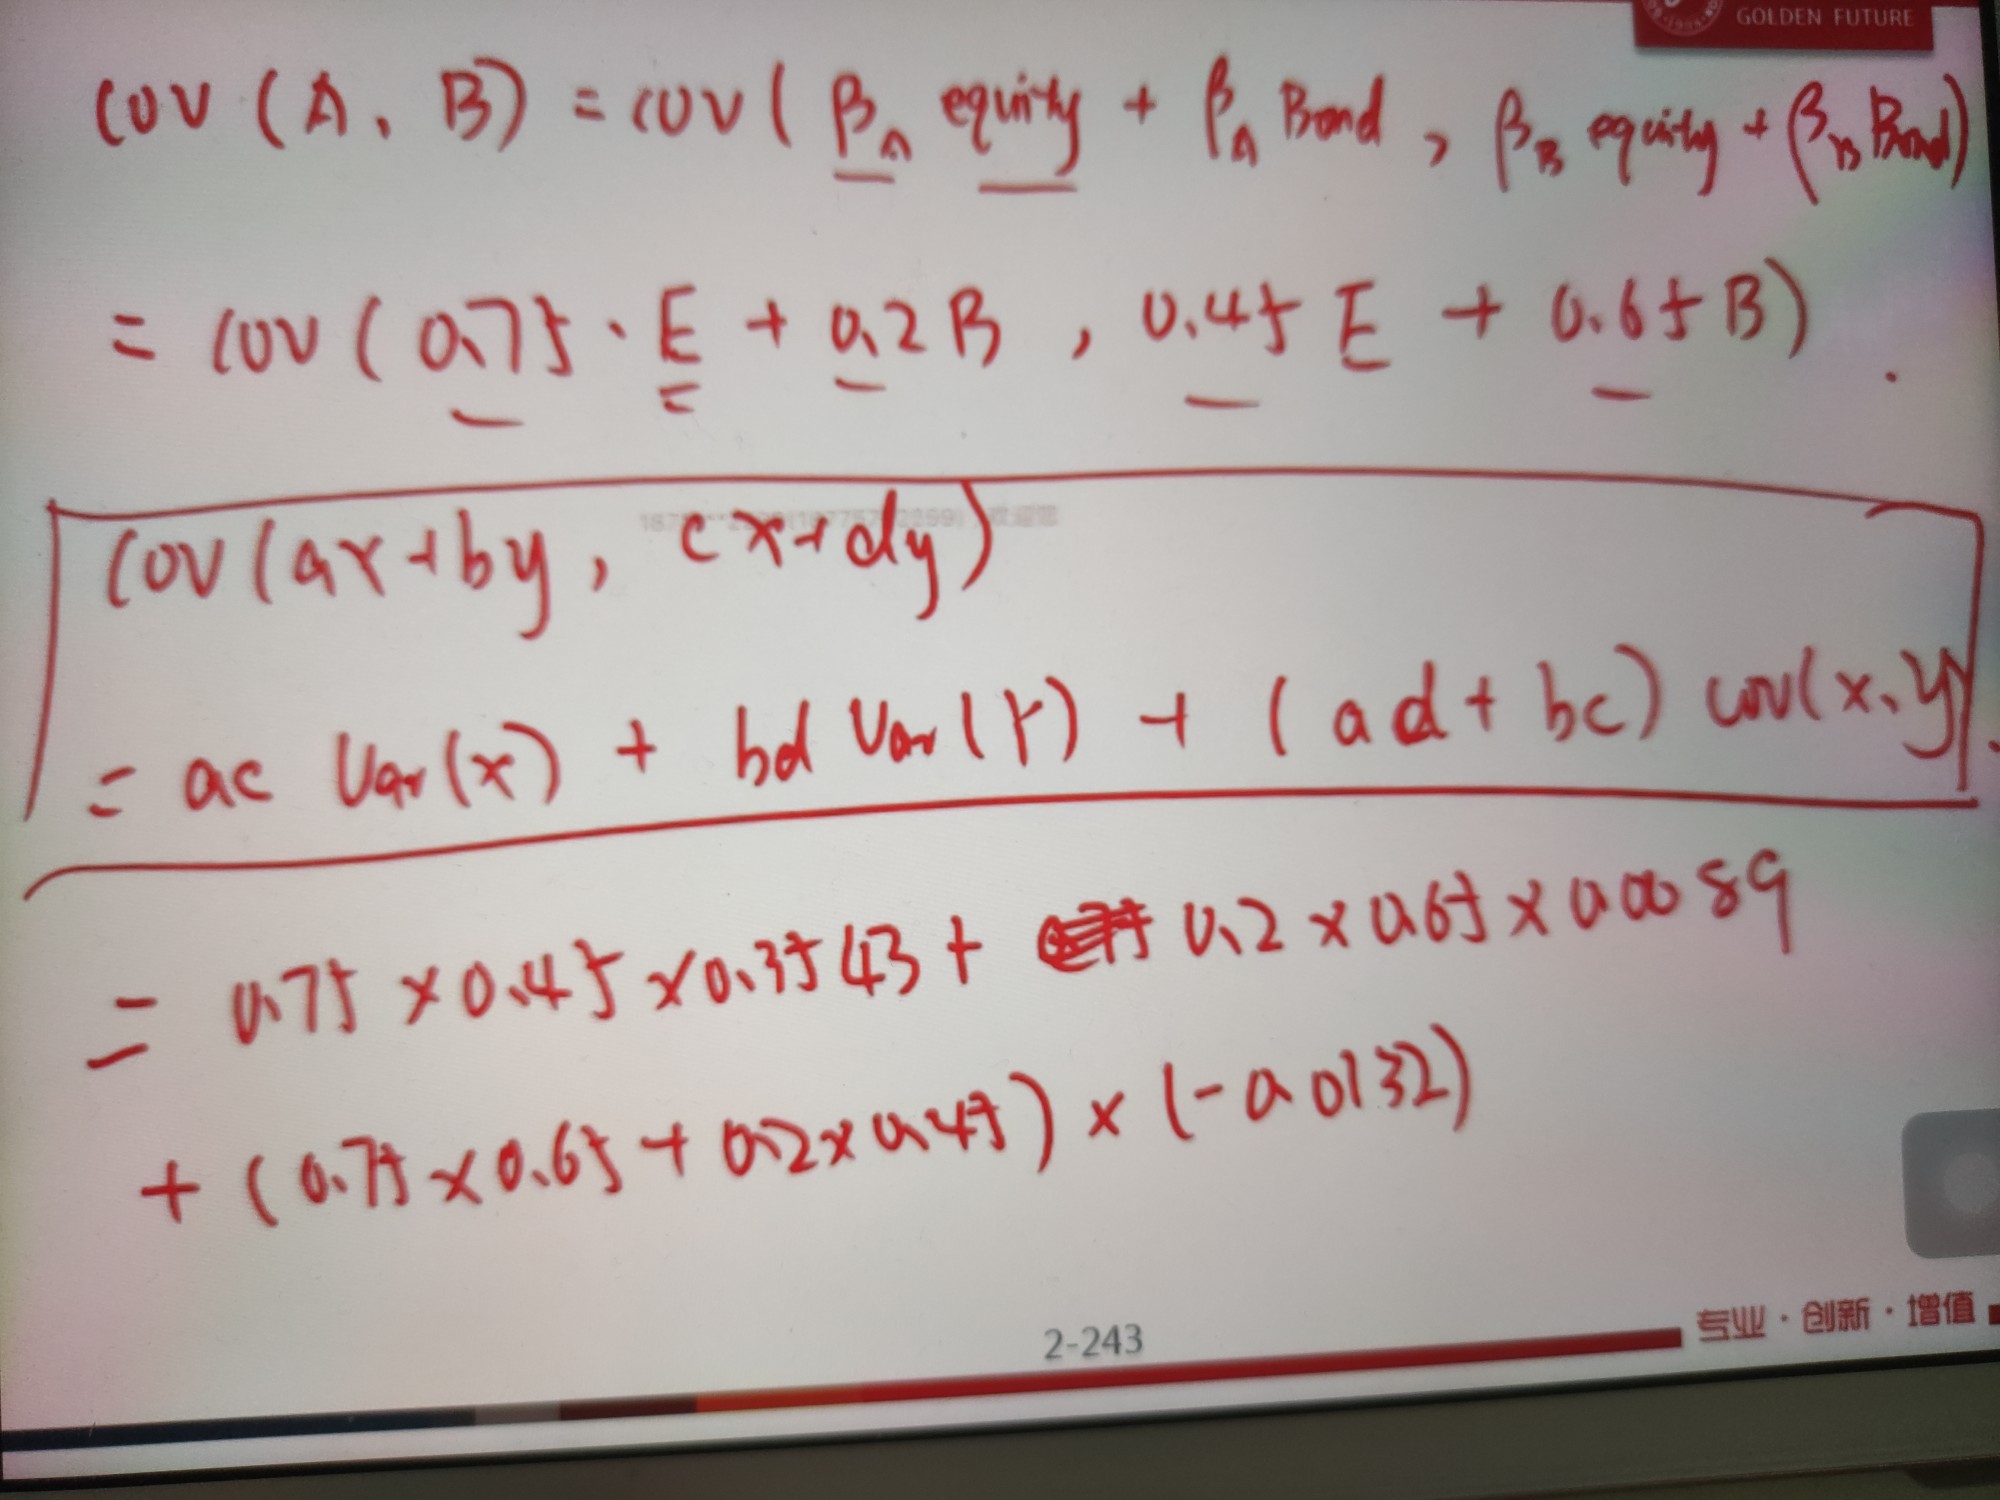 GOLDEN FUTURE
COV (A, B) = COV ( βA equity + βA Bond , βB equity + βB Bond)
= COV ( 0.75 · E + 0.2 B , 0.45 E + 0.65 B)
COV (ax+by, cx+dy)
= ac Var(x) + bd Var(Y) + ( ad + bc) cov(x, y)
= 0.75 × 0.45 × 0.3543 + 0.2 × 0.65 × 0.0089
+ ( 0.75 × 0.65 + 0.2 × 0.45 ) × (-0.0132)
2-243
专业 · 创新 · 增值